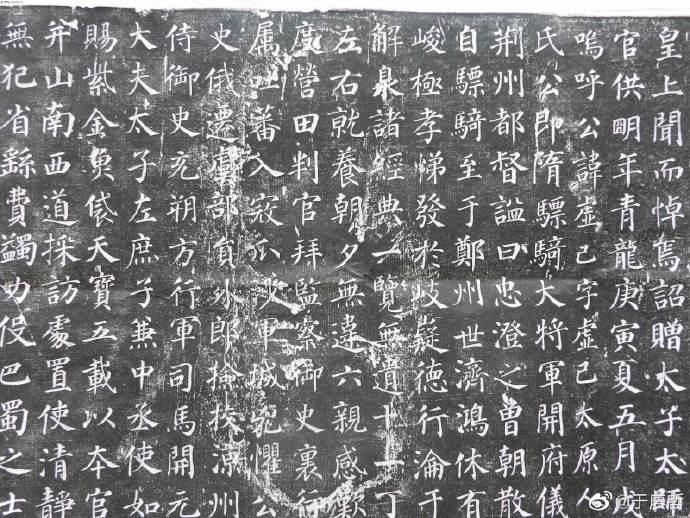 皇上聞而悼焉詔贈太子太師
官供明年青龍庚寅夏五月戊
嗚呼公諱虛己字虛己太原人
氏公即隋驃騎大將軍開府儀
荆州都督謚曰忠澄之曾朝散
自驃騎至于鄭州世濟鴻休有
峻極孝悌發於岐嶷德行淪于
解泉諸經典一覽無遺十一丁
左右就養朝夕無違六親感歎
度營田判官拜監察御史裏行
属吐蕃入寇瓜沙軍城兇懼公
史俄遷虞部員外郎撿挍涼州
侍御史充朔方行軍司馬開元
大夫太子左庶子兼中丞使如
賜紫金魚袋天寶五載以本官
并山南西道採訪處置使清靜
無犯省繇費蠲力役巴蜀之士
@于賡哲